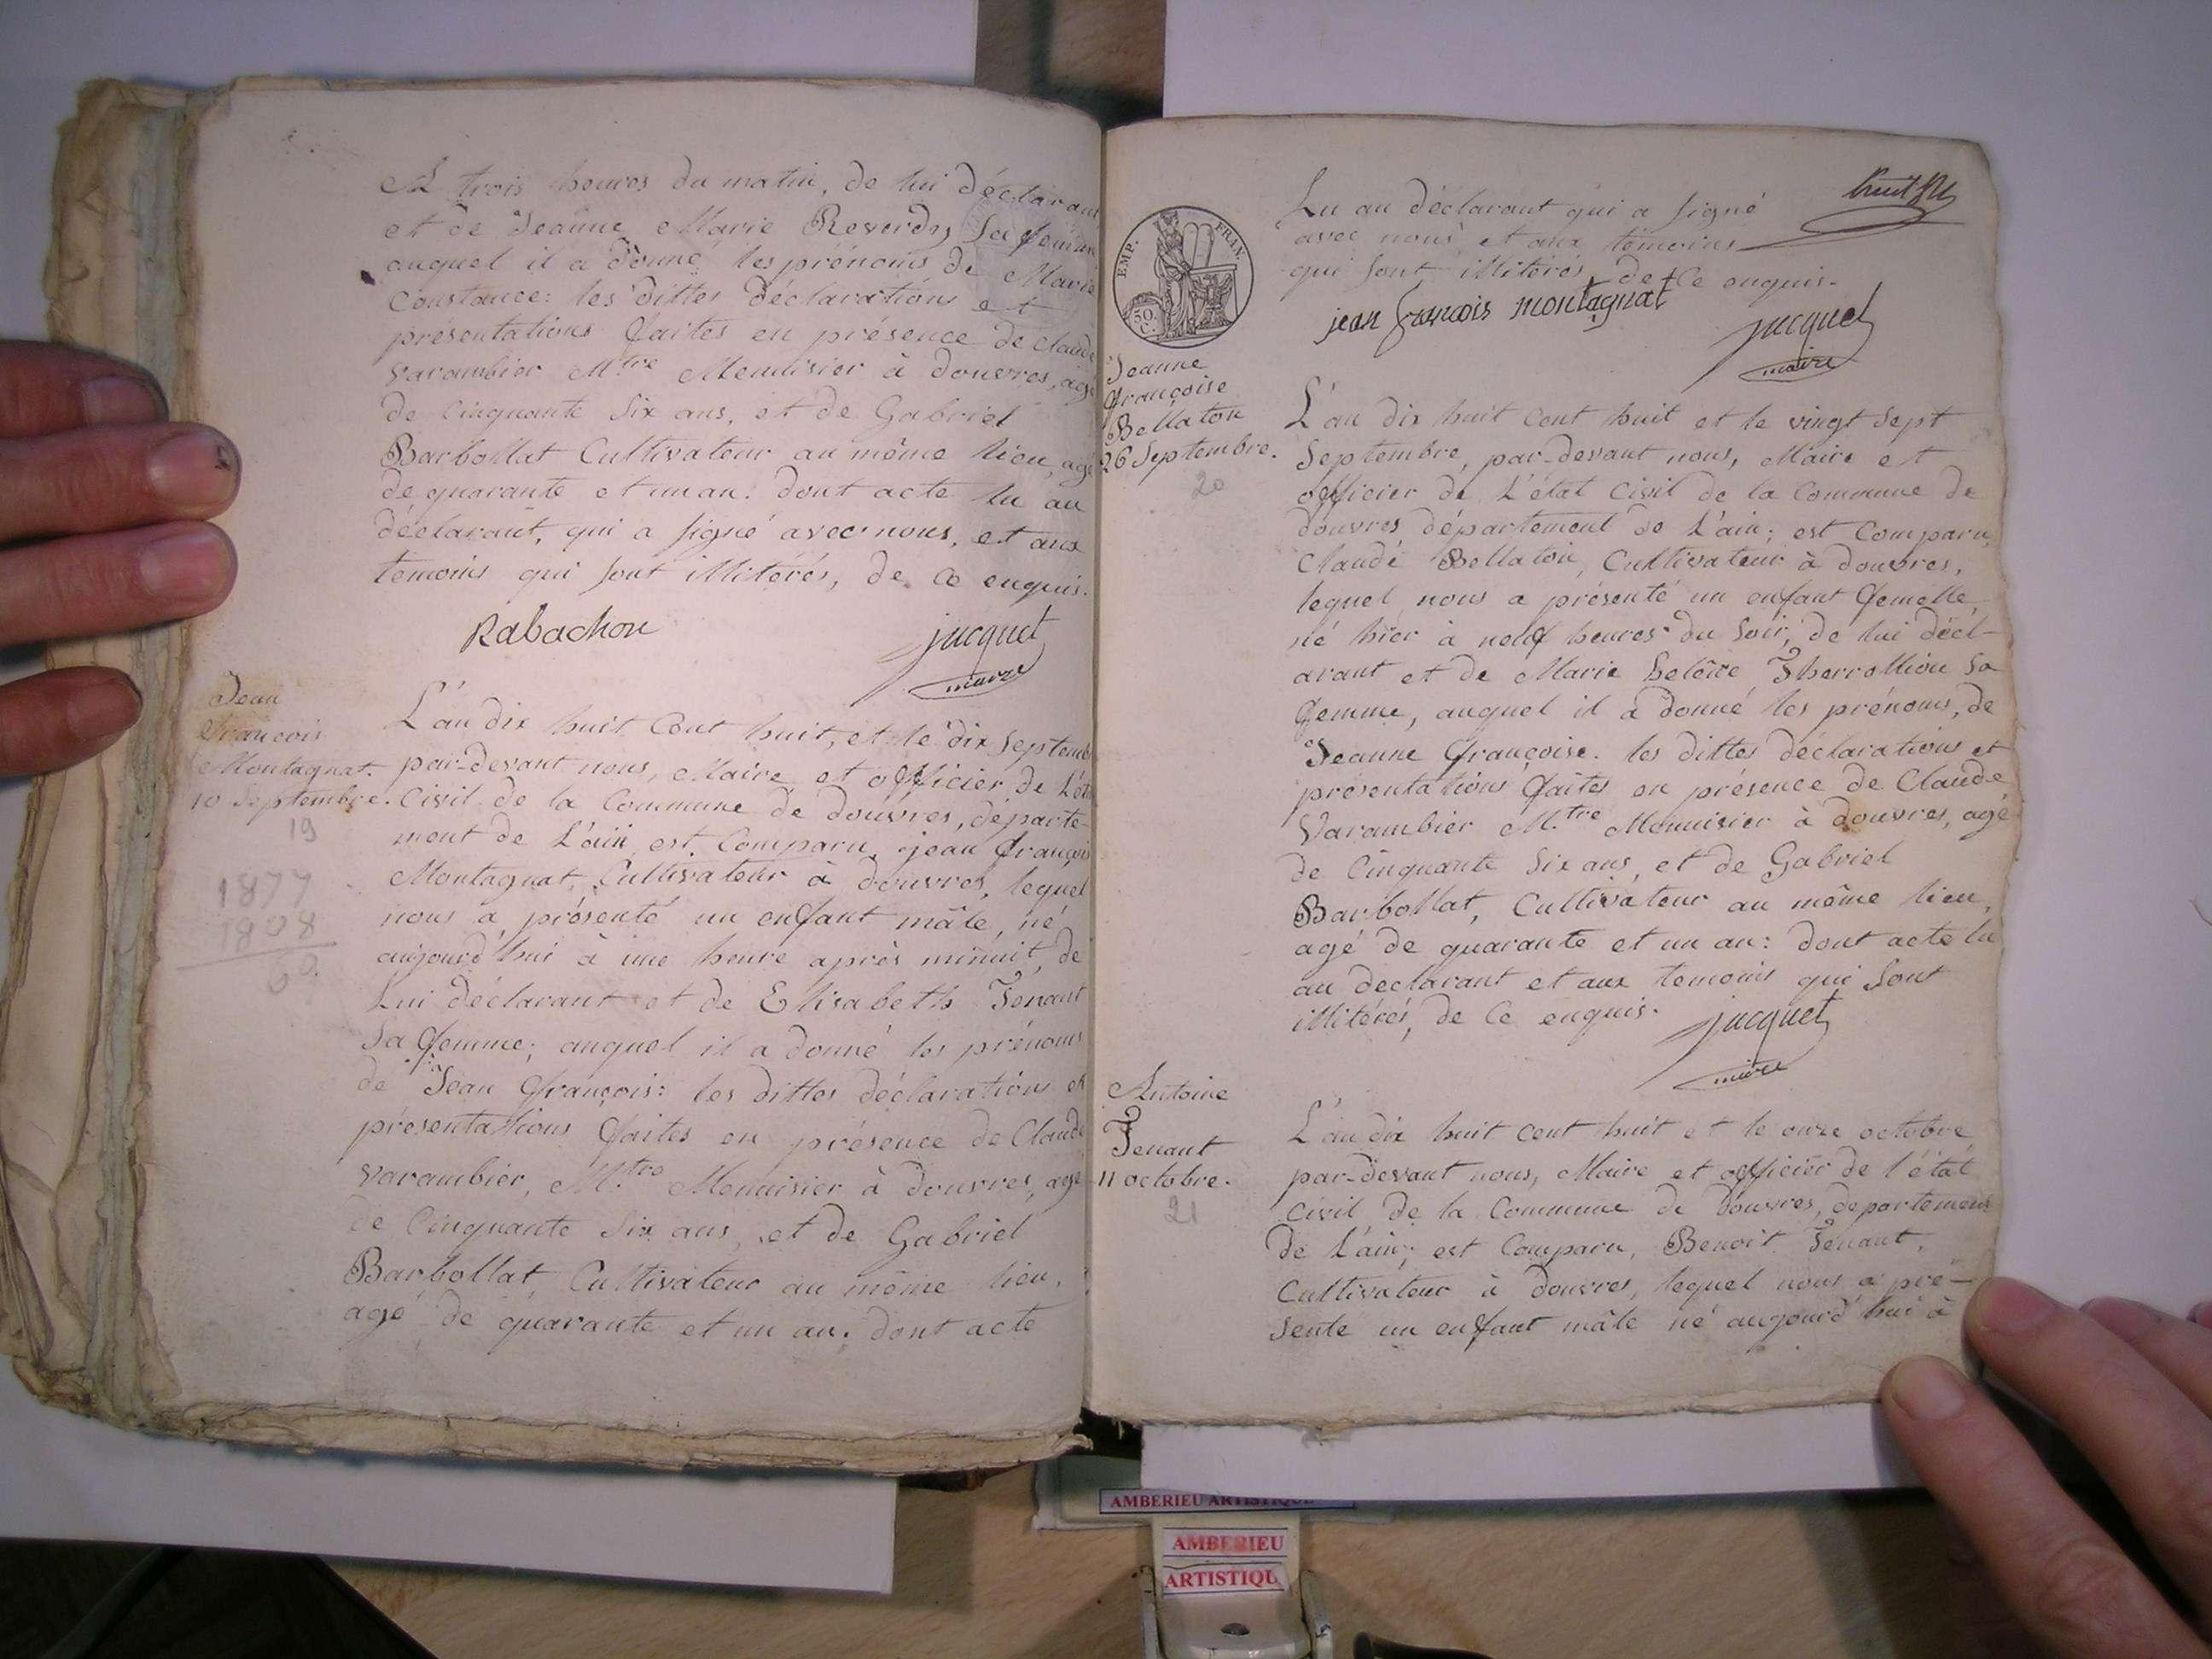 A trois heures du matin, de lui déclarant
et de Jeanne Marie Reverdy sa femme
auquel il a donné les prénoms de Marie
Constance: les dittes déclarations et
présentations faites en présence de Claude
Varambier M.tre Menuisier à douvres, agé
de Cinquante Six ans, et de Gabriel
Barbollat Cultivateur au même lieu, agé
de quarante et un an: dont acte lu au
déclarant, qui a signé avec nous, et aux
temoins qui sont illitérés, de ce enquis.
Rabachon
jacquet
maire
Jean
François
Montagnat.
10 Septembre.
19
1877
1808
69
L'an dix huit Cent huit, et le dix Septemb
par-devant nous, Maire et officier de L'ét
Civil de la Commune de douvres, départe-
ment de L'ain est Comparu jean françois
Montagnat, Cultivateur à douvres, lequel
nous a présenté un enfant mâle, né
aujourd'hui à une heure après minuit, de
Lui déclarant et de Elisabeth Tenant
Sa femme; auquel il a donné les prénoms
de Jean François: les dittes déclarations et
présentations faites en présence de Claude
Varambier, M.tre Menuisier à Douvres, agé
de Cinquante Six ans, et de Gabriel
Barbollat, Cultivateur au même lieu,
agé de quarante et un an. dont acte
huit
Lu au déclarant qui a signé
avec nous, et aux témoins
qui sont illitérés, de Ce enquis.
jean francois montagnat
jacquet
maire
EMP. FRAN.
50. C.
Jeanne
françoise
Bellaton
26 Septembre.
20
L'an dix huit Cent huit et le vingt Sept
Septembre, par-devant nous, Maire et
officier de L'état Civil de la Commune de
douvres département de L'ain; est Comparu,
Claude Bellaton, Cultivateur à douvres,
lequel nous a présenté un enfant femelle,
né hier à neuf heures du Soir, de lui décl-
arant et de Marie Sa
femme, auquel il a donné les prénoms, de
Jeanne françoise. les dittes déclarations et
présentations faites en présence de Claude
Varambier M.tre Menuisier à douvres, agé
de Cinquante Six ans, et de Gabriel
Barbollat, Cultivateur au même lieu,
agé de quarante et un an: dont acte lu
au declarant et aux temoins qui Sont
illitérés, de Ce enquis.
jacquet
maire
Antoine
Tenant
11 octobre.
21
L'an dix huit cent huit et le onze octobre,
par-devant nous, Maire et officier de l'état
Civil de la Commune de Douvres, département
de L'ain; est Comparu, Benoit Tenant,
Cultivateur à Douvres, lequel nous a pré-
sente un enfant mâle né aujourd'hui à
AMBERIEU ARTISTIQUE
AMBERIEU
ARTISTIQU